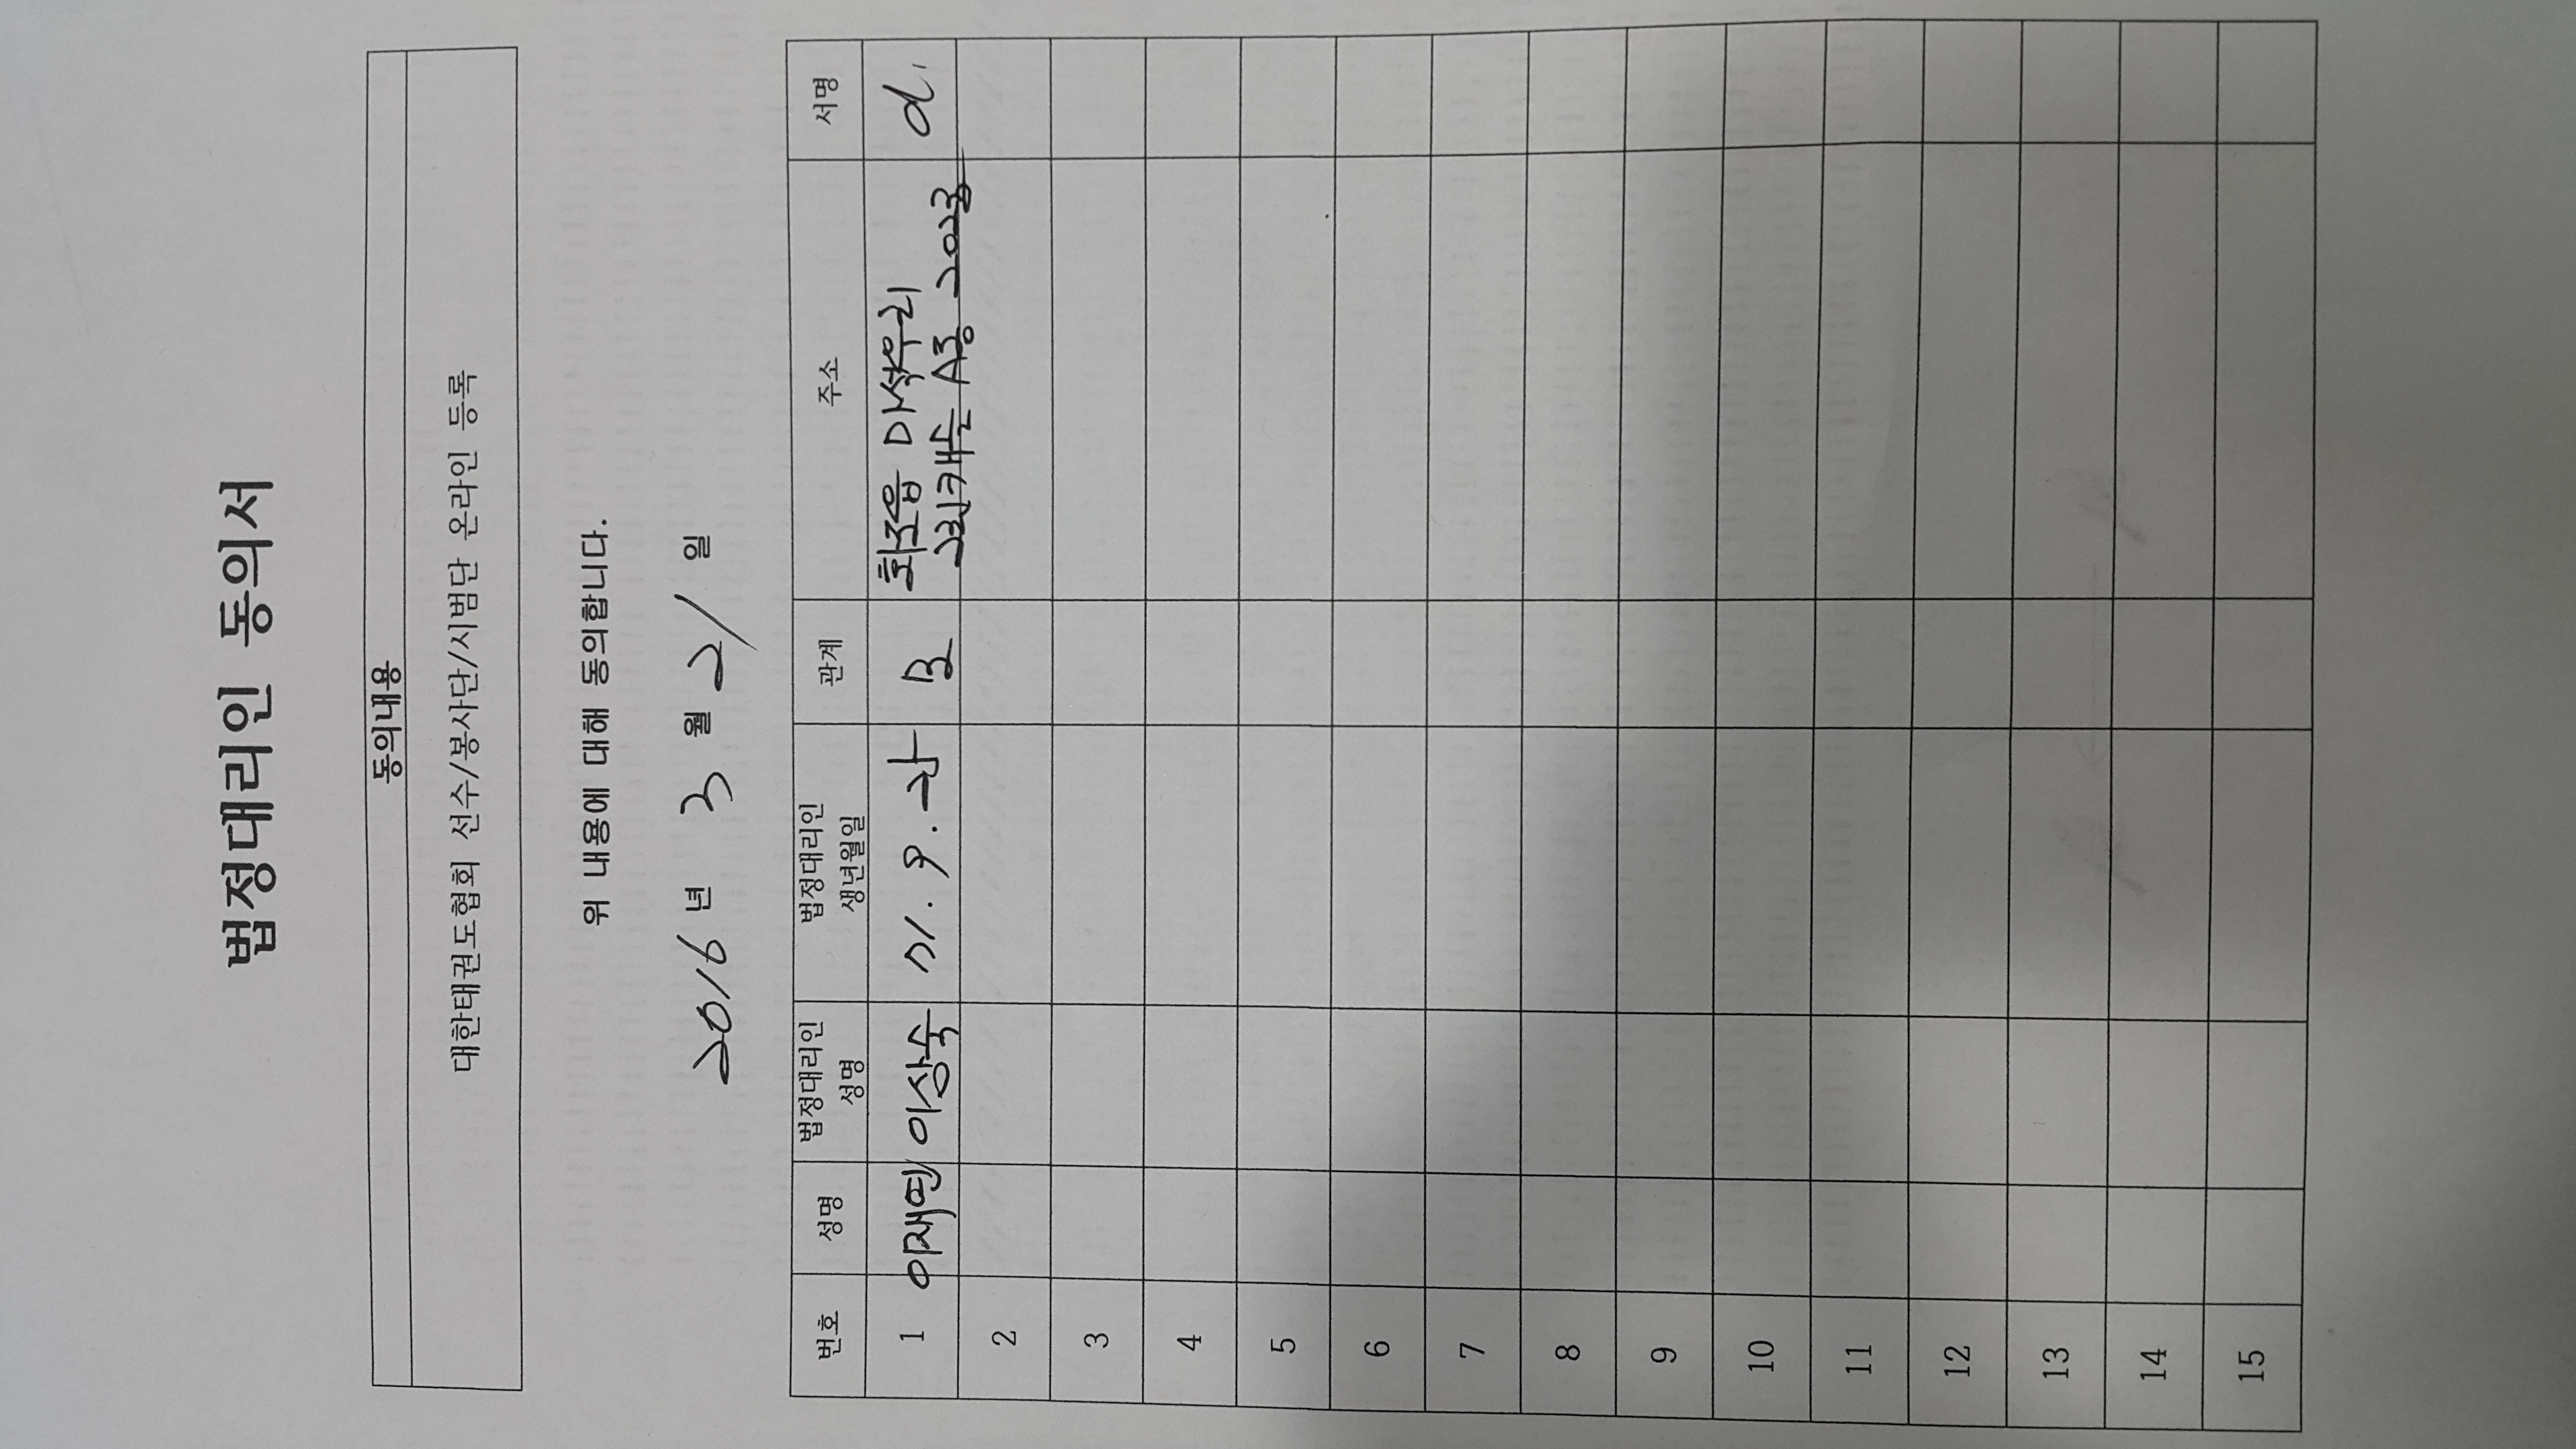 법정대리인 동의서
동의내용
대한태권도협회 선수/봉사단/시범단 온라인 등록
위 내용에 대해 동의합니다.
2016 년 3 월 21 일
번호 성명 법정대리인 성명 법정대리인 생년월일 관계 주소 서명
1 이재연 이상숙 71. 9. 모 화조읍 마석우리
그린캐슬 A동 202호
2
3
4
5
6
7
8
9
10
11
12
13
14
15